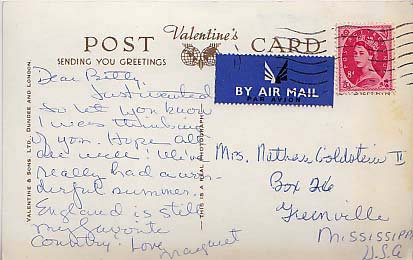 POST Valentine's CARD
SENDING YOU GREETINGS
BY AIR MAIL
PAR AVION
Dear Betty,
Just wanted
to let you know
I was thinking
of you. Hope all
are well. We've
really had a won-
derful summer.
England is still
my favorite
country. Love,
Margaret
VALENTINE & SONS. LTD., DUNDEE AND LONDON.
THIS IS A REAL PHOTOGRAPH
Mrs. Nathan Goldstein II
Box 26
Greenville
MISSISSIPPI
U.S.A